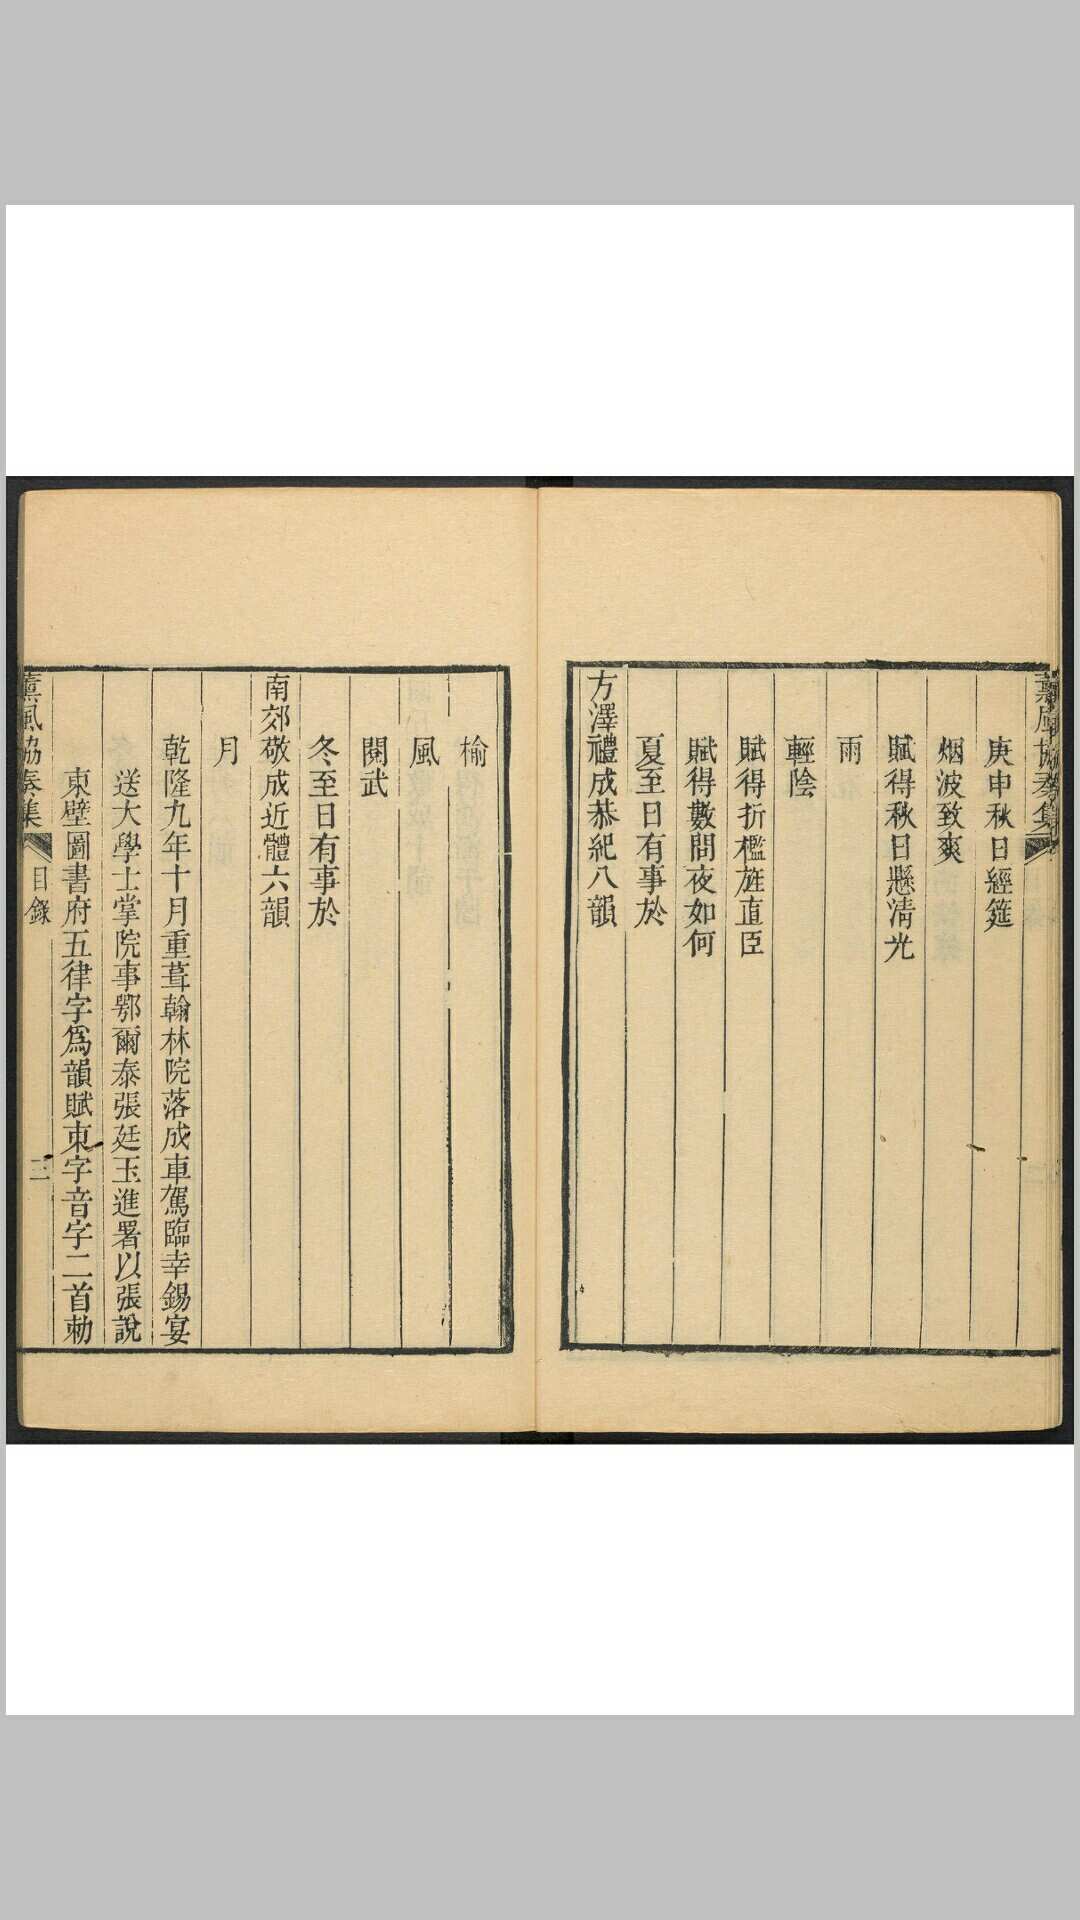 薰風協奏集
庚申秋日經筵
烟波致爽
賦得秋日懸清光
雨
輕陰
賦得折檻旌直臣
賦得數問夜如何
夏至日有事於
方澤禮成恭紀八韻
榆
風
閱武
冬至日有事於
南郊敬成近體六韻
月
乾隆九年十月重葺翰林院落成車駕臨幸錫宴
送大學士掌院事鄂爾泰張廷玉進署以張說
東壁圖書府五律字為韻賦東字音字二首勅
薰風協奏集 目錄 三